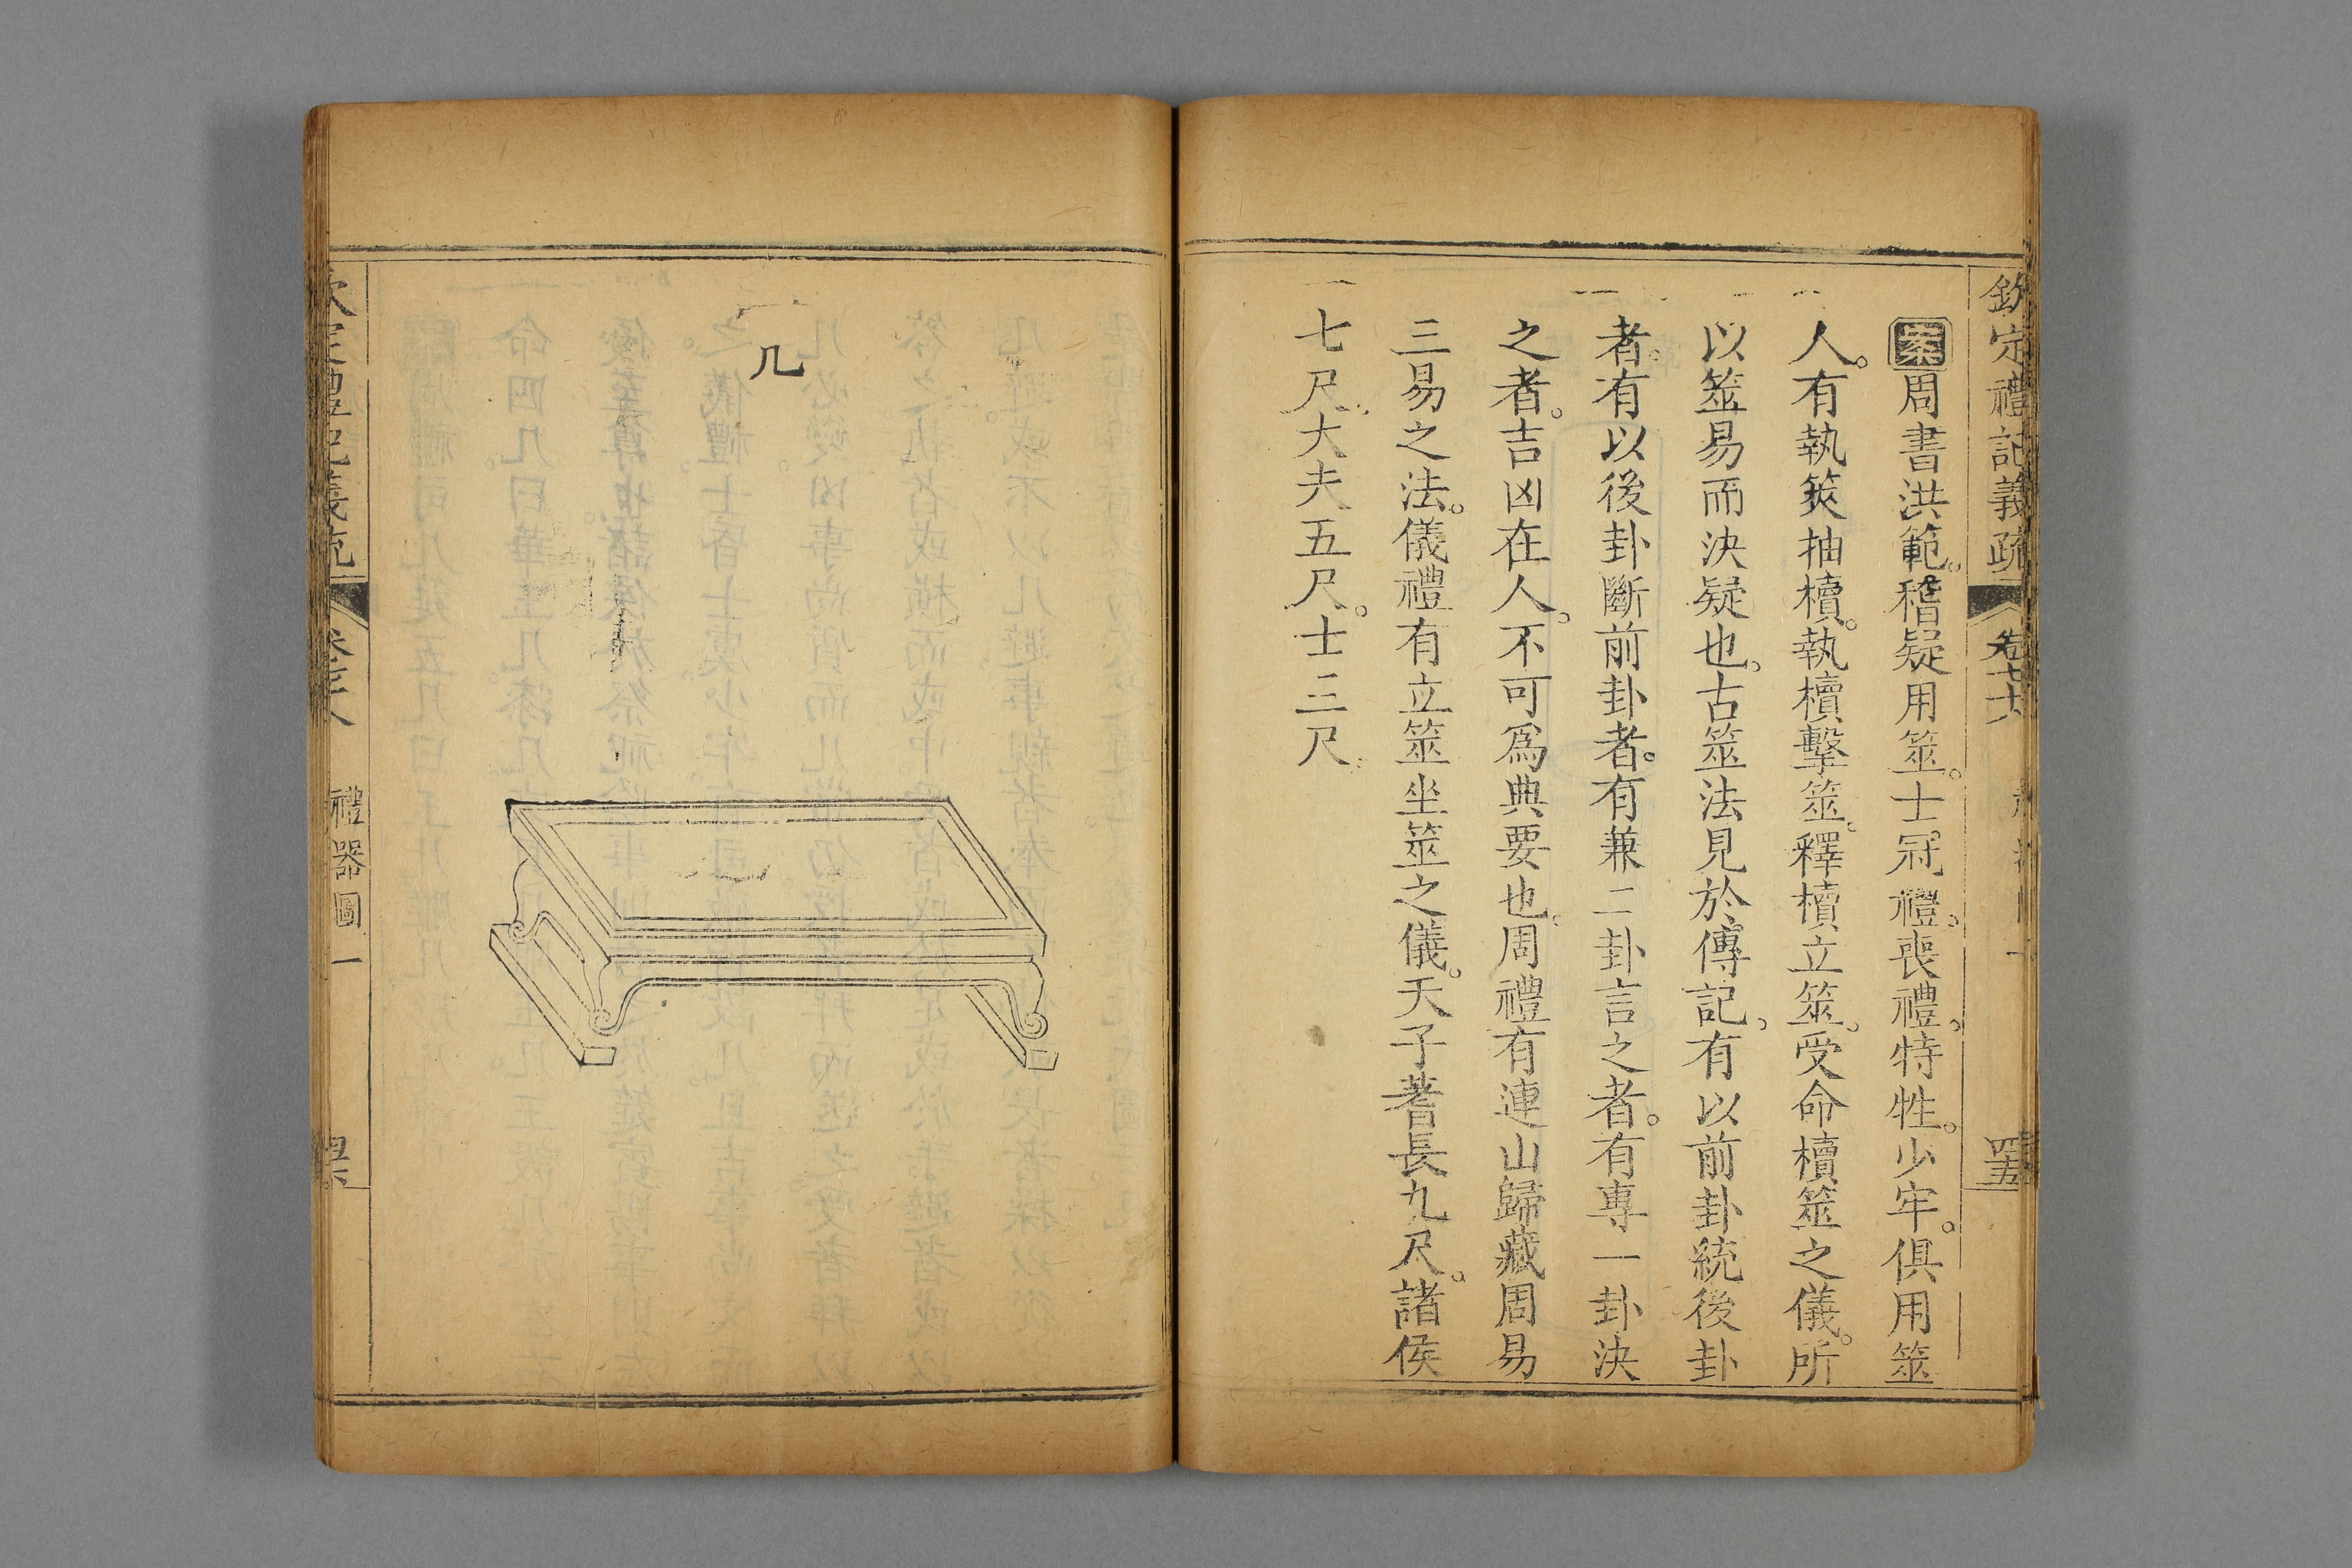 欽定禮記義疏 卷七十八
四五
案周書洪範。稽疑用筮。士冠禮。喪禮。特牲。少牢。俱用筮
人。有執筴抽櫝。執櫝擊筮。釋櫝立筮。受命櫝筮之儀。所
以筮易而決疑也。古筮法見於傳記。有以前卦統後卦
者。有以後卦斷前卦者。有兼二卦言之者。有專一卦決
之者。吉凶在人。不可爲典要也。周禮有連山歸藏周易
三易之法。儀禮有立筮坐筮之儀。天子蓍長九尺。諸侯
七尺。大夫五尺。士三尺。
几
禮器圖一